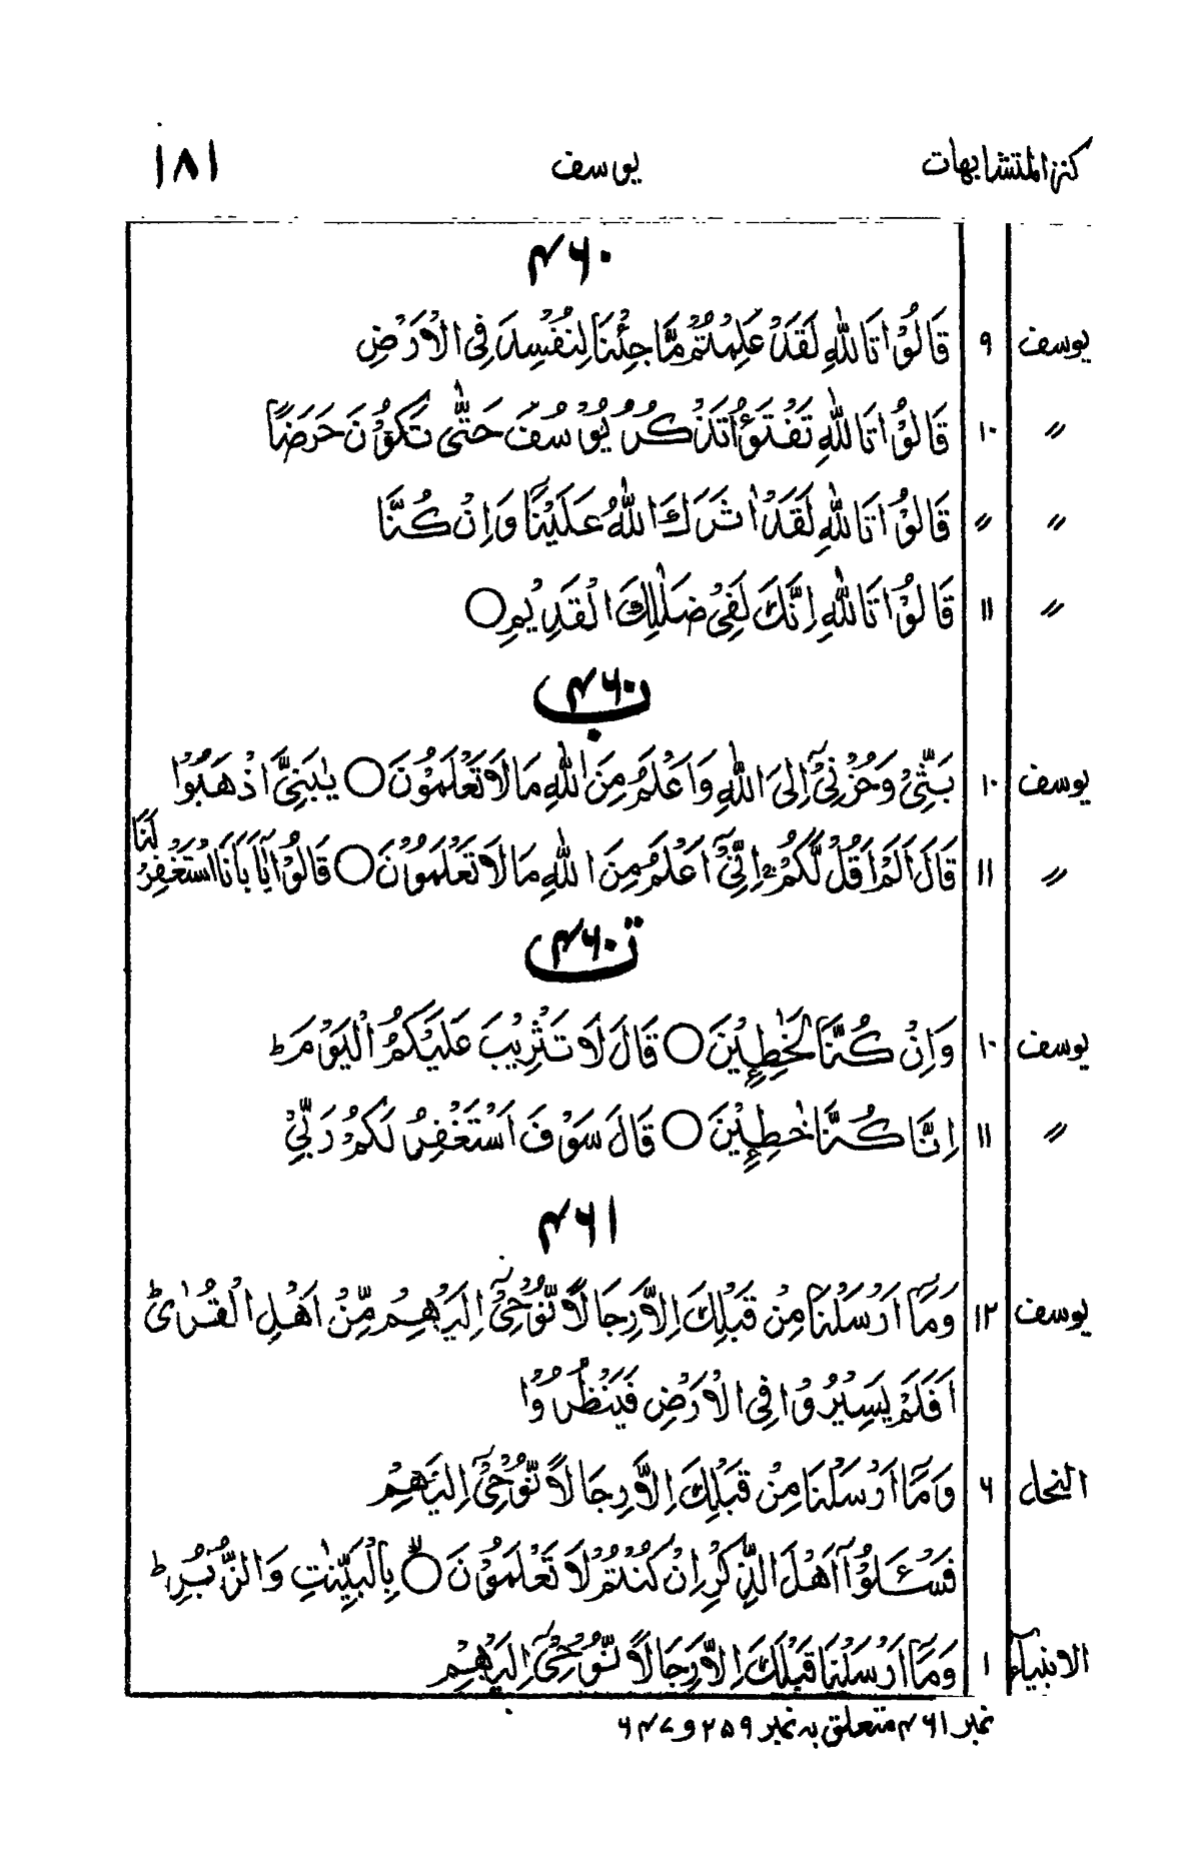 كنز المتشابهات یوسف ۱۸۱
۴۶۰
یوسف ۹ قَالُوْا تَاللّٰهِ لَقَدْ عَلِمْتُمْ مَّا جِئْنَا لِنُفْسِدَ فِی الْاَرْضِ
〃 ۱۰ قَالُوْا تَاللّٰهِ تَفْتَؤُا تَذْكُرُ یُوْسُفَ حَتّٰی تَكُوْنَ حَرَضًا
〃 〃 قَالُوْا تَاللّٰهِ لَقَدْ اٰثَرَكَ اللّٰهُ عَلَیْنَا وَاِنْ كُنَّا
〃 ۱۱ قَالُوْا تَاللّٰهِ اِنَّكَ لَفِیْ ضَلٰلِكَ الْقَدِیْمِ ○
۴۶۰ب
یوسف ۱۰ بَثِّیْ وَحُزْنِیْۤ اِلَی اللّٰهِ وَاَعْلَمُ مِنَ اللّٰهِ مَا لَا تَعْلَمُوْنَ ○ یٰبَنِیَّ اذْهَبُوْا
〃 ۱۱ قَالَ اَلَمْ اَقُلْ لَّكُمْ ۚۙ اِنِّیْۤ اَعْلَمُ مِنَ اللّٰهِ مَا لَا تَعْلَمُوْنَ ○ قَالُوْا یٰۤاَبَانَا اسْتَغْفِرْ لَنَا
۴۶۰ت
یوسف ۱۰ وَاِنْ كُنَّا لَخٰطِـِٕیْنَ ○ قَالَ لَا تَثْرِیْبَ عَلَیْكُمُ الْیَوْمَ ؕ
〃 ۱۱ اِنَّا كُنَّا خٰطِـِٕیْنَ ○ قَالَ سَوْفَ اَسْتَغْفِرُ لَكُمْ رَبِّیْ
۴۶۱
یوسف ۱۲ وَمَاۤ اَرْسَلْنَا مِنْ قَبْلِكَ اِلَّا رِجَالًا نُّوْحِیْۤ اِلَیْهِمْ مِّنْ اَهْلِ الْقُرٰی ؕ
اَفَلَمْ یَسِیْرُوْا فِی الْاَرْضِ فَیَنْظُرُوْا
النحل ۶ وَمَاۤ اَرْسَلْنَا مِنْ قَبْلِكَ اِلَّا رِجَالًا نُّوْحِیْۤ اِلَیْهِمْ
فَسْـَٔلُوْۤا اَهْلَ الذِّكْرِ اِنْ كُنْتُمْ لَا تَعْلَمُوْنَ ○ۙ بِالْبَیِّنٰتِ وَالزُّبُرِ ؕ
الانبیآء ۱ وَمَاۤ اَرْسَلْنَا قَبْلَكَ اِلَّا رِجَالًا نُّوْحِیْۤ اِلَیْهِمْ
نمبر ۴۶۱ متعلق بہ نمبر ۲۵۹ و ۶۴۷